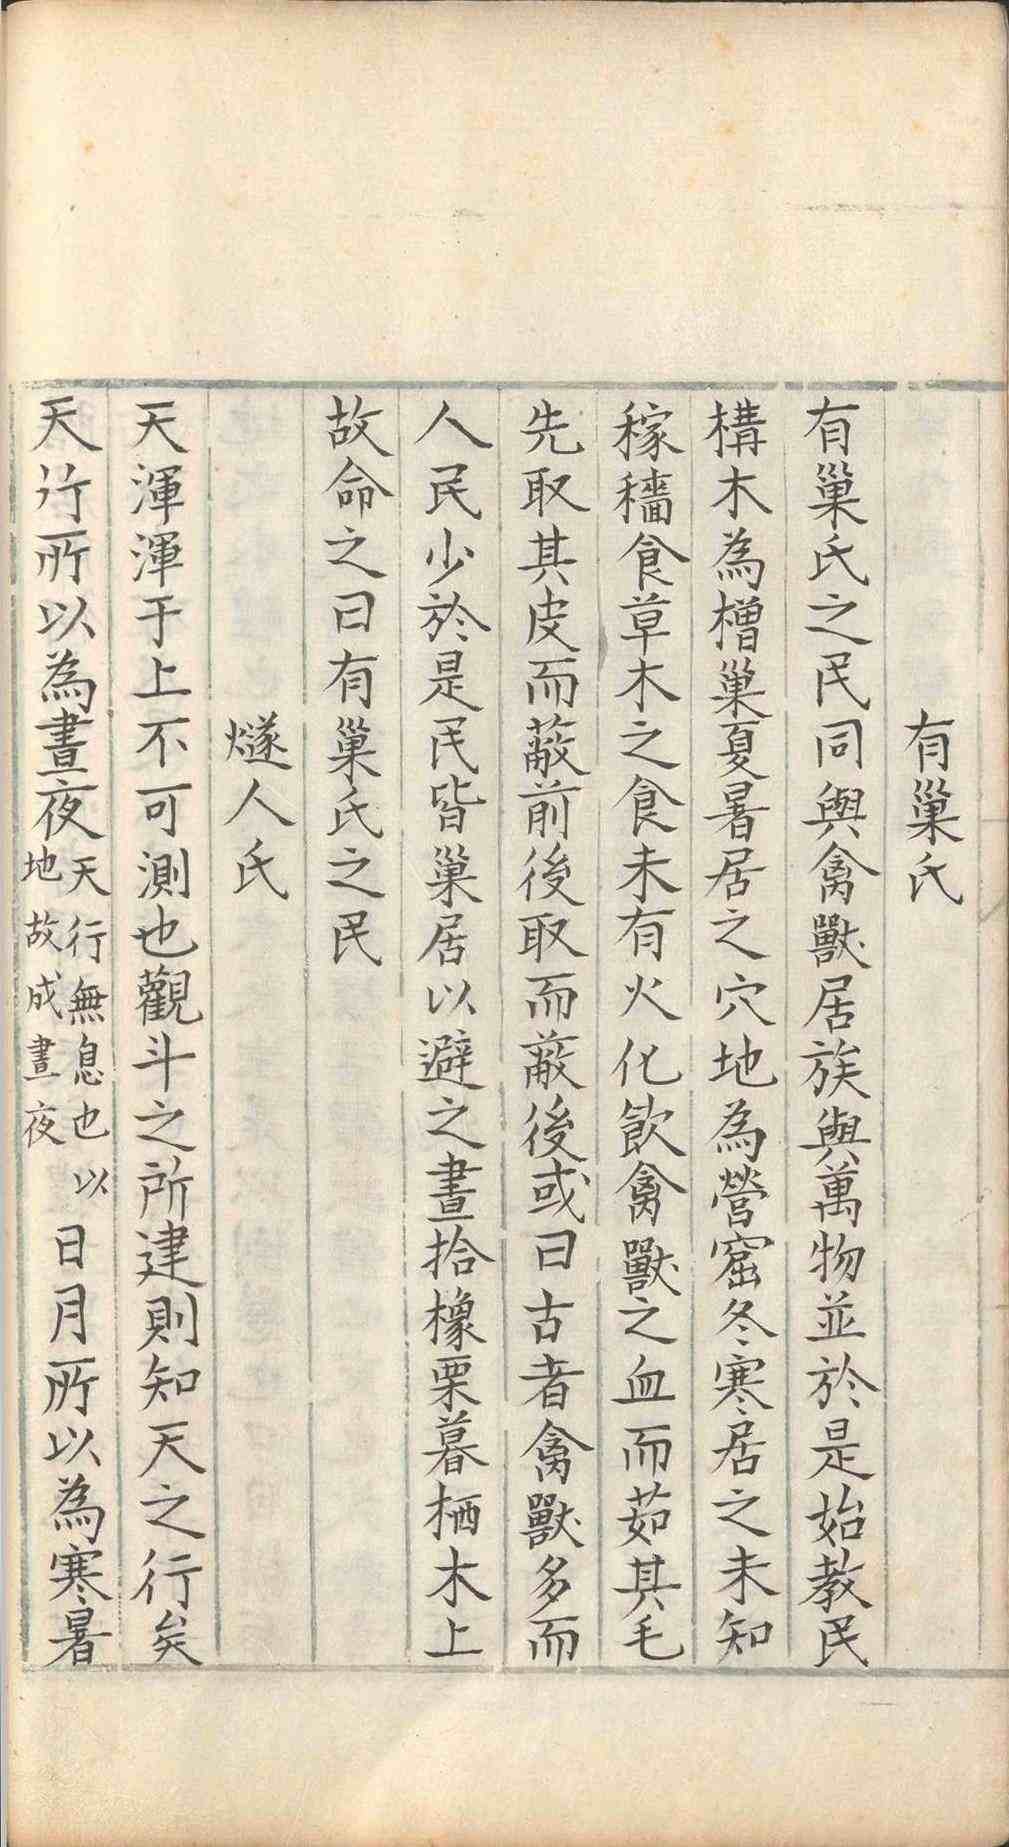 有巢氏
有巢氏之民同與禽獸居族與萬物並於是始教民
構木為橧巢夏暑居之穴地為營窟冬寒居之未知
稼穡食草木之食未有火化飲禽獸之血而茹其毛
先取其皮而蔽前後取而蔽後或曰古者禽獸多而
人民少於是民皆巢居以避之晝拾橡栗暮栖木上
故命之曰有巢氏之民
燧人氏
天渾渾于上不可測也觀斗之所建則知天之行矣
天行所以為晝夜天行無息也以地故成晝夜日月所以為寒暑